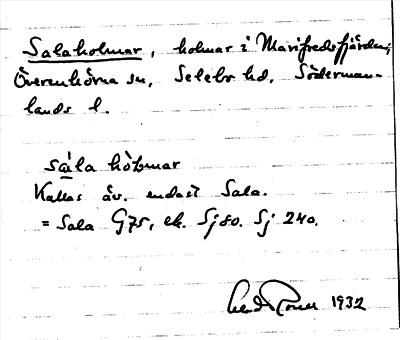 Salaholmar, holmar i Mariefredsfjärden,
Överenhörna sn, Selebo hd, Söderman-
lands l.
sàla hòlmar
Kallas äv. endast Sala.
= Sala G75, ek. Sj 80. Sj 240.
1932